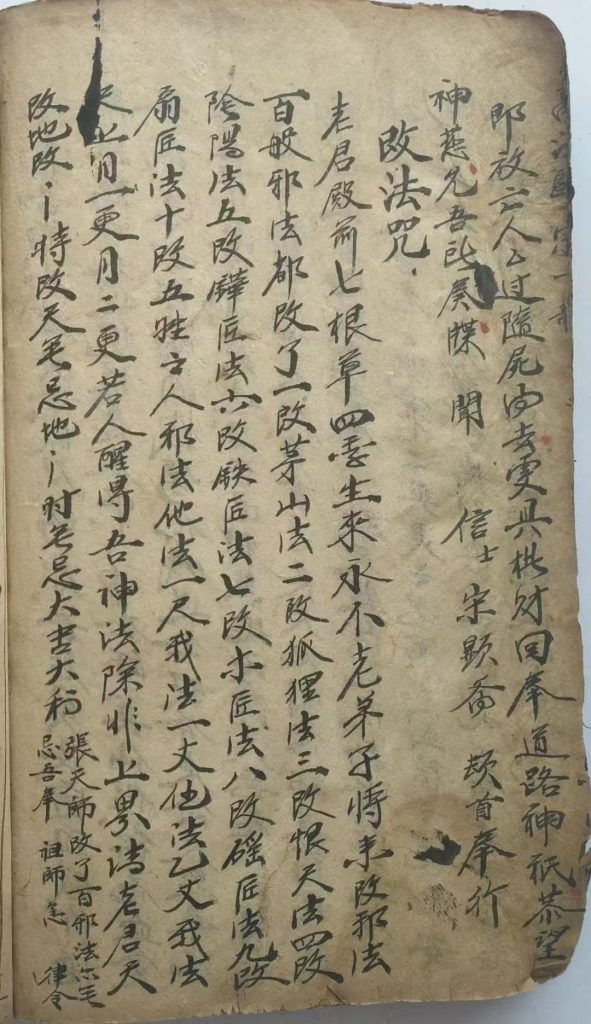 即放亡人々过隨屍內去更具楮財回奉道路神祇恭望
神慈允吾此奏牒 聞 信士 宋顕斋 頓首奉行
改法咒
老君殿前七根草四季生來永不老弟子將來改邪法
百般邪法都改了一改茅山法二改狐狸法三改恨天法四改
陰陽法五改鏵匠法六改鉄匠法七改木匠法八改磘匠法九改
扇匠法十改五姓亡人邪法他法一尺我法一丈他法乙丈我法
天上月一更月二更若人醒得吾神法除非上界請老君天
改地改丶時改天無忌地丶时無忌大吉大利
張天師改了百邪法尔無
忌吾奉 祖師急 律令